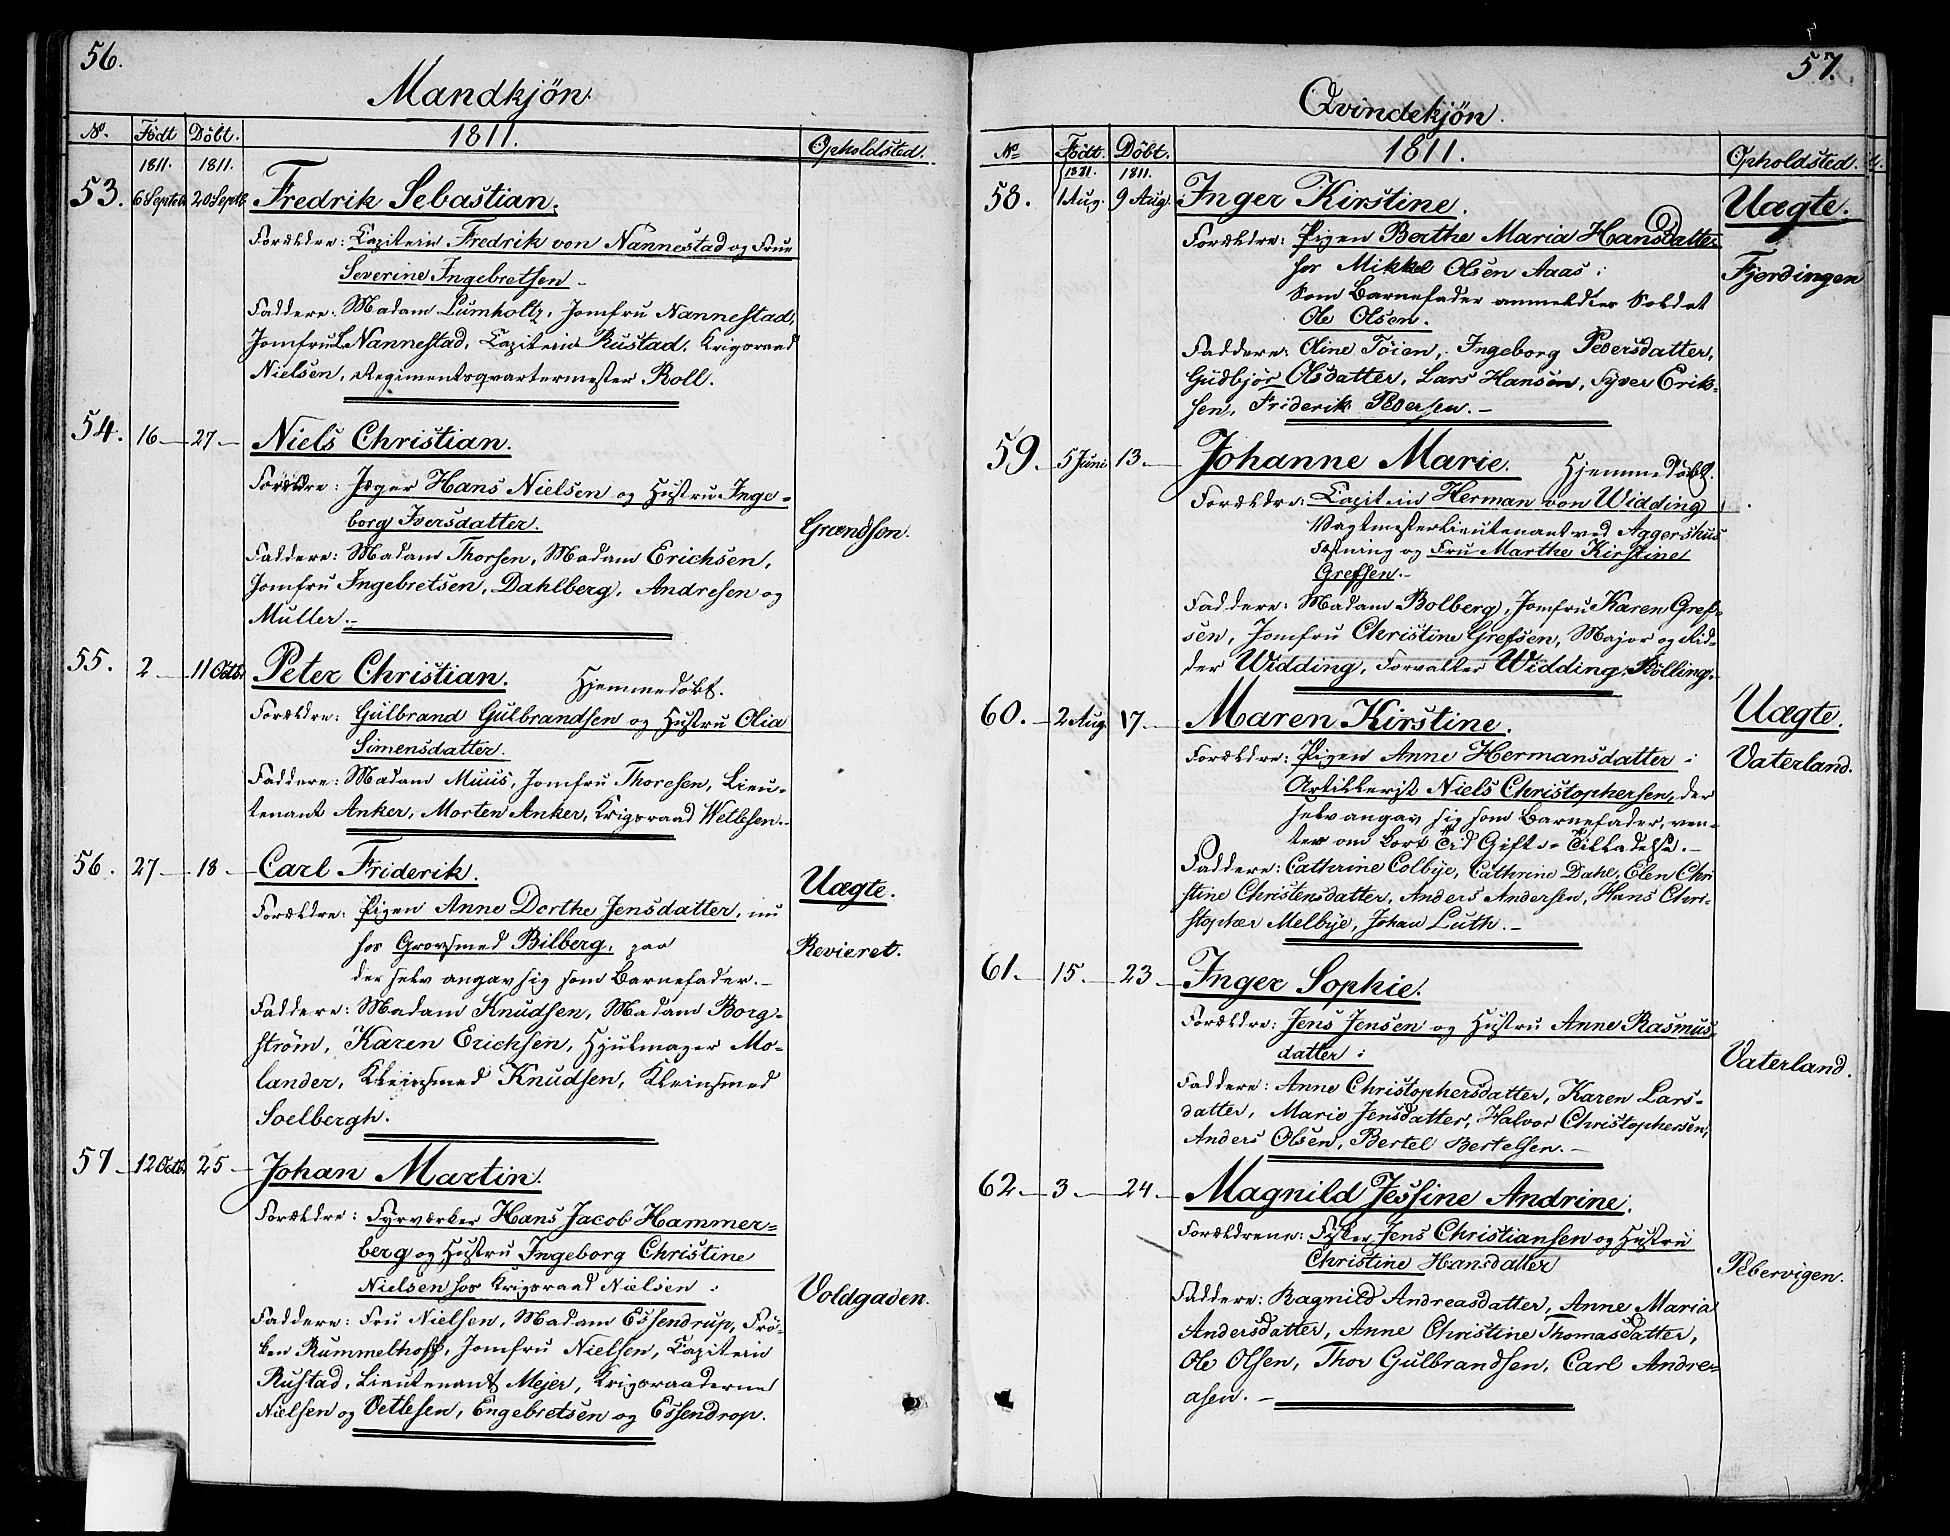 56.
Mandkjön.
No. Födt Döbt. 1811. Opholdsted.
1811. 1811.
53. 6 Septbr. 20 Septb. Fredrik Sebastian.
Forældre: Capitein Fredrik von Nannestad og Frue
Severine Ingebretsen
Faddere: Madam Lumholtz, Jomfru Nannestad,
Jomfru L. Nannestad, Capitein Rustad, Krigsraad
Nielsen, Regimentsqvartermester Roll.
54. 16 27 Niels Christian.
Forældre: Jæger Hans Nielsen og Hustru Inge-
borg Iversdatter.
Grændsen.
Faddere: Madam Thorsen, Madam Erichsen,
Jomfru Ingebretsen, Dahlberg, Andresen og
Muller.
55. 2 11 Octbr Peter Christian. Hjemmedöbt.
Forældre: Gulbrand Gulbrandsen og Hustru Olia
Simensdatter.
Faddere: Madam Muus, Jomfru Thoresen, Lieu-
tenant Anker, Morten Anker, Krigsraad Wetlesen.
56. 27 18 Carl Friderik.
Uægte.
Forældre: Pigen Anne Dorthe Jensdatter, nu
hos Grovsmed Bilberg, paa
Revieret.
der selv angav sig som Barnefader.
Faddere: Madam Knudsen, Madam Borg-
ström, Karen Erichsen, Hjulmager Mo-
lander, Kleinsmed Knudsen, Kleinsmed
Soelbergh.
57 12 Octb. 25 Johan Martin.
Forældre: Fyrværker Hans Jacob Hammer-
berg og Hustru Ingeborg Christine
Nielsen hos Krigsraad Nielsen i
Voldgaden.
Faddere: Fru Nielsen, Madam Essendrup, Frö-
ken Rummelhoff, Jomfru Nielsen, Capitein
Rustad, Lieutenant Mejer, Krigsraaderne
Nielsen og Vetlesen, Engebretsen og Essendrop.
57.
Qvindekjön.
No Födt. Döbt. 1811. Opholdsted.
1811. 1811.
58. 1 Aug. 9 Aug. Inger Kirstine. Uægte.
Forældre: Pigen Berthe Maria Hansdatter
hos Mikkel Olsen Aaas i
Fjerdingen
Som Barnefader anmeldtes Soldat
Ole Olsen.
Faddere: Oline Töien, Ingeborg Pedersdatter,
Gudbjör Olsdatter, Lars Hansen, Syver Erik-
sen, Friderik Pedersen.
59. 5 Juni 13. Johanne Marie. Hjemmedöbt.
Forældre: Capitein Herman von Widding
Vagtmesterlieutenant ved Aggershus
Fæstning og Fru Marthe Kirstine
Grefsen.
Faddere: Madam Bolberg, Jomfru Karen Gref-
sen, Jomfru Christine Grefsen, Major og Rid-
der Widding, Forvalter Widding, Bölling.
60. 2 Aug. 17. Maren Kirstine. Uægte.
Forældre: Pigen Anne Hermansdatter i
Vaterland.
Artillerist Niels Christophersen, der
selv angav sig som Barnefader, ven-
ter om kort Tid Gifte-Tilladelse.
Faddere: Cathrine Colbye, Cathrine Dahl, Elen Chri
stine Christensdatter, Anders Andersen, Hans Chri-
stopher Melbye, Johan Luth.
61. 15. 23 Inger Sophie.
Forældre: Jens Jensen og Hustru Anne Rasmus-
datter i
Vaterland.
Faddere: Anne Christophersdatter, Karen Lars-
datter, Marie Jensdatter, Halvor Christophersen,
Anders Olsen, Bertel Bertelsen.
62. 3 24 Magnild Jessine Andrine.
Forældrene: Fisker Jens Christiansen og Hustru
Christine Hansdatter
Pebervigen.
Faddere: Ragnild Andreasdatter, Anne Maria
Andersdatter, Anne Christine Thomasdatter,
Ole Olsen, Thor Gulbrandsen, Carl Andre-
asen.